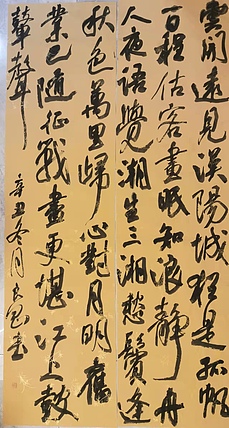 雲開遠見漢陽城猶是孤帆
一日程估客晝眠知浪靜舟
人夜語覺潮生三湘愁鬢逢
秋色萬里歸心對月明舊
業已隨征戰盡更堪江上鼓
鼙聲
辛丑冬月書